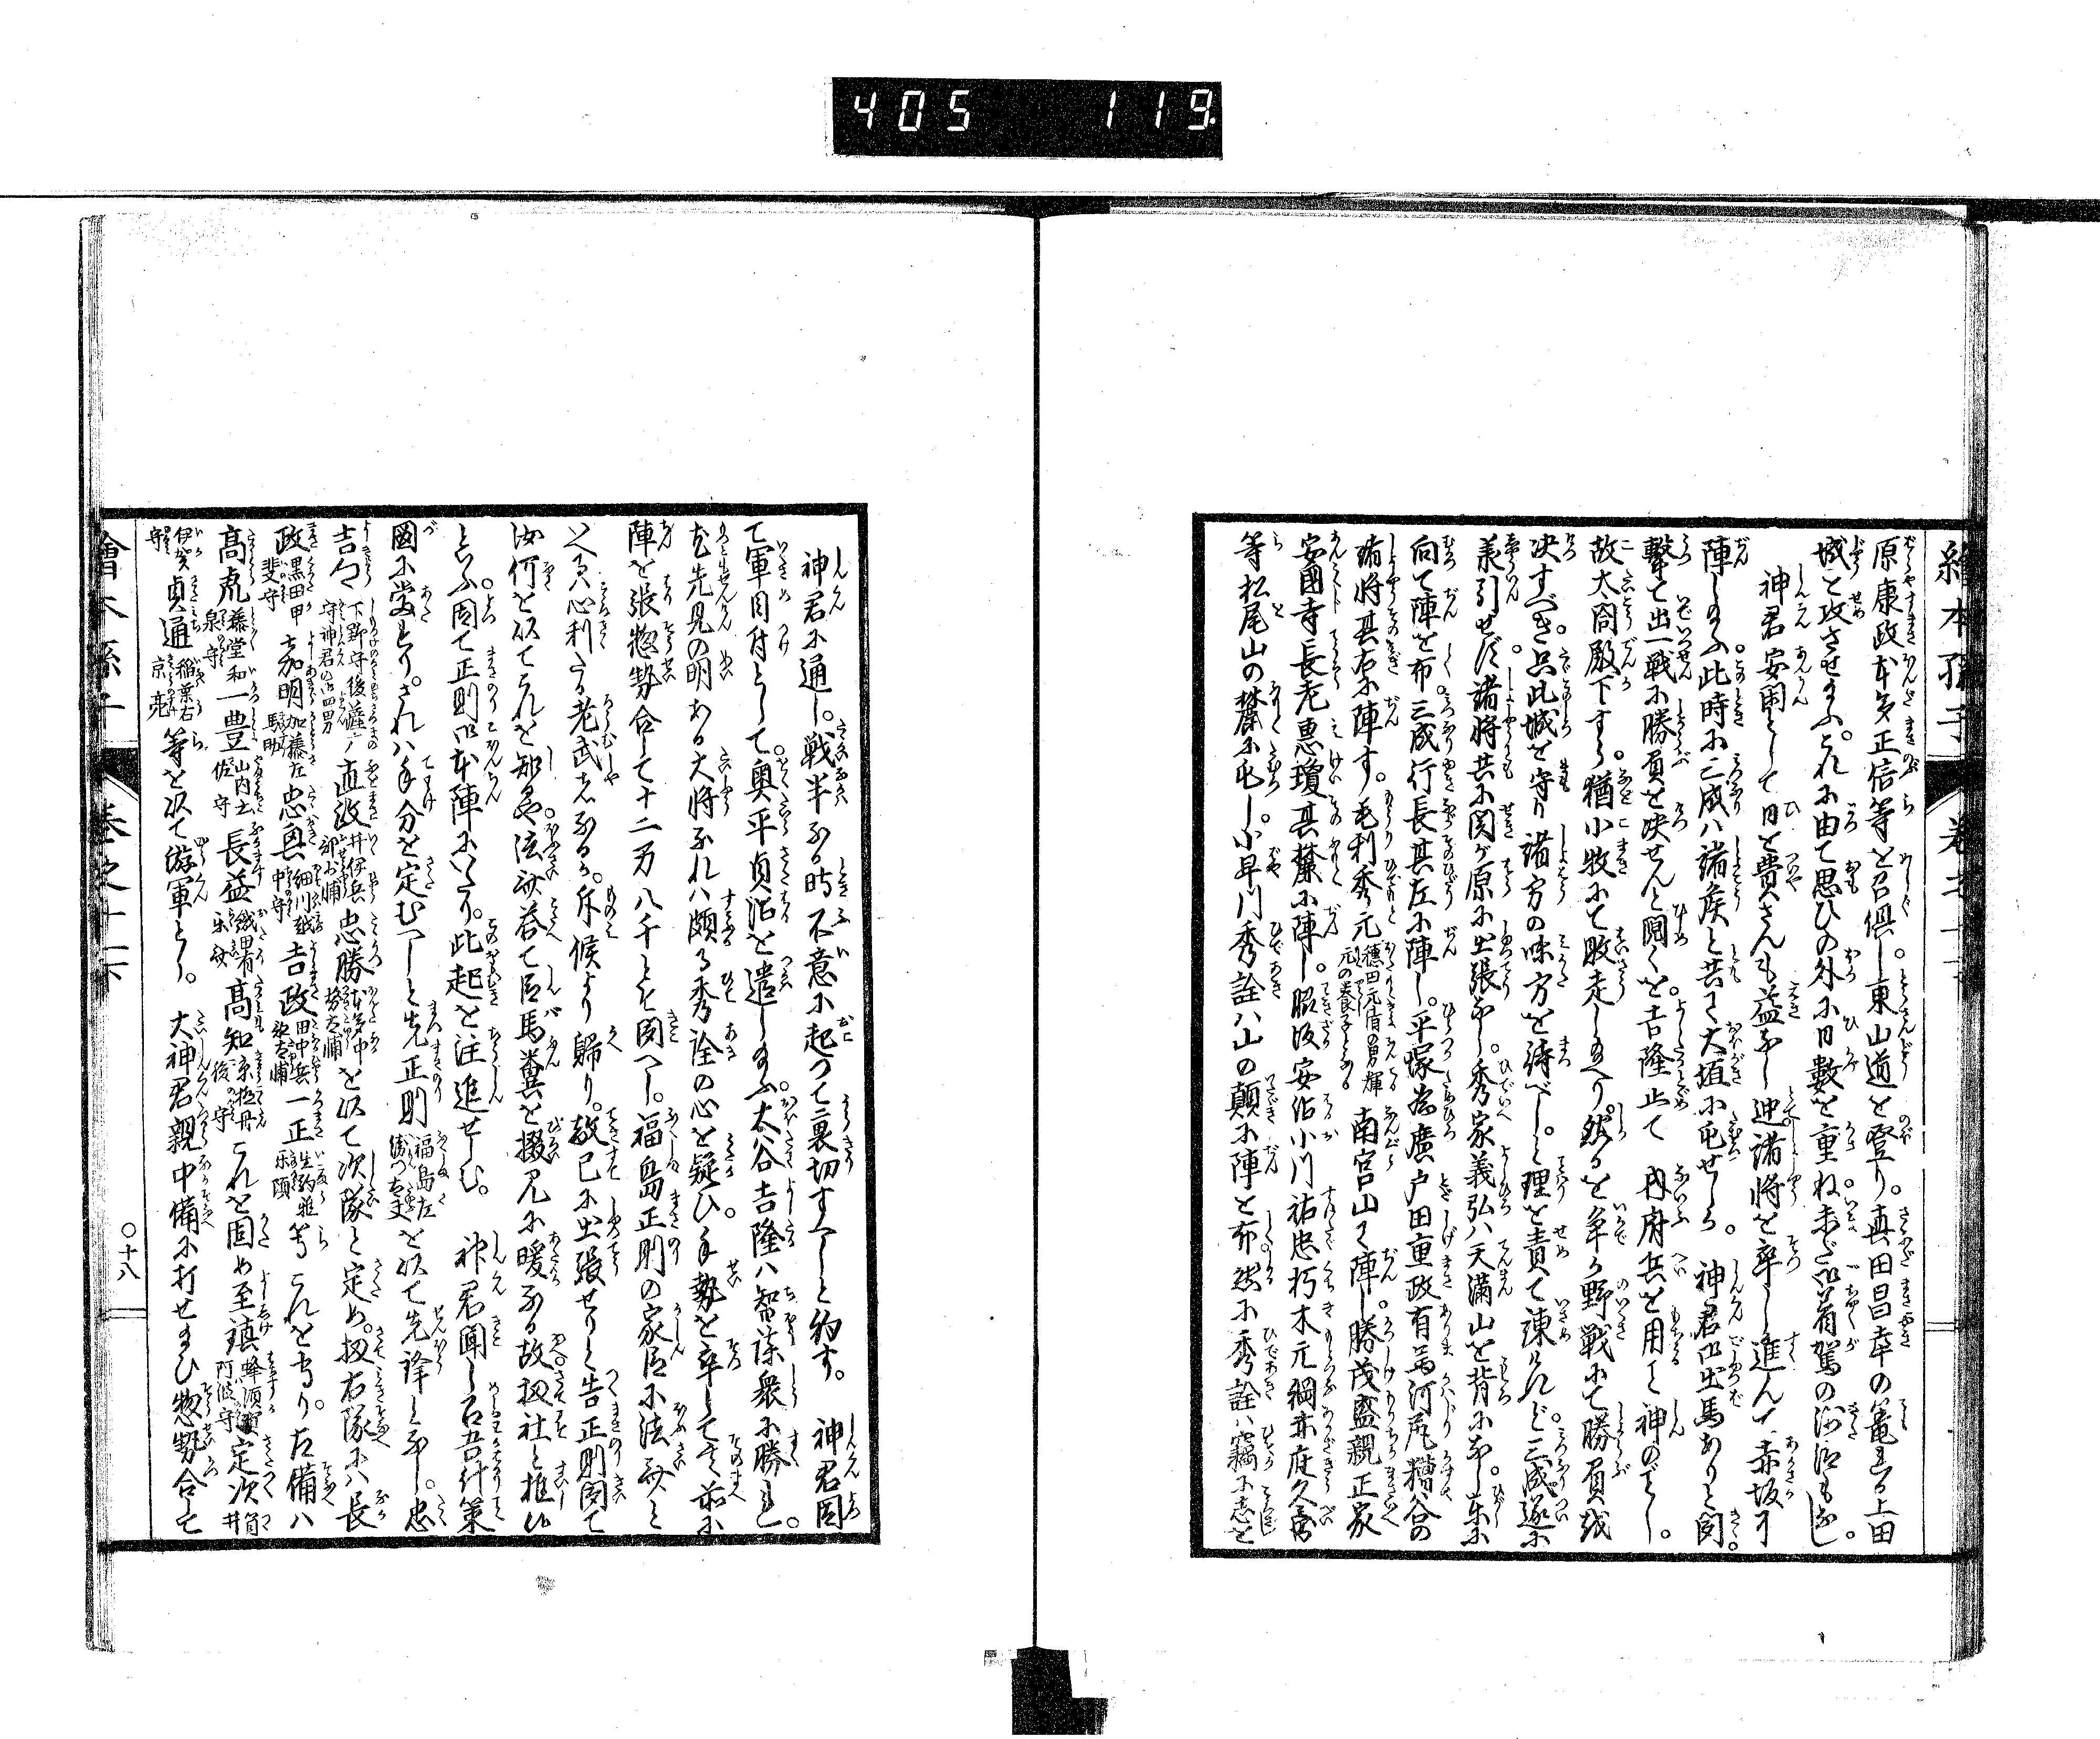 405 119.
繪本孫子 巻之十一下
原康政本多正信等を召俱し。東山道を登り。真田昌幸の篭る上田
城を攻させ玉ふ。これに由て思ひの外に日數を重ね。未だ御着駕の沙汰もなし。
神君安閑として日を費さんも益なし迚諸将を率し進んで赤坂に
陣し玉ふ。此時に三成ハ諸侯と共に大垣に屯せしが。神君御出馬ありと聞。
撃て出一戦に勝負を决せんと鬩くを。吉隆止て 内府兵を用て神のごとし。
故太閤殿下すら。猶小牧にて敗走し玉へり。然るを争か野戦にて勝負を
决すべき。只此城を守り諸方の味方を待べし。と理を責て諫けれど。三成遂に
美引せず。諸将共に関ヶ原に出張なし。秀家義弘ハ天滿山を背になし。東に
向て陣を布。三成行長其左に陣し。平塚為廣戸田重政有馬河尻糟谷の
諸将其右に陣す。毛利秀元穗田元清の男輝元の養子となる南宮山に陣し。勝茂盛親正家
安國寺長老惠瓊其麓に陣し。脇坂安治小川祐忠朽木元綱赤座久兵衛
等松尾山の麓に屯し。小早川秀詮ハ山の顛に陣を布。然に秀詮ハ竊に志を
神君に通し。戦半なる時不意に起つて裏切すべしと約す。 神君因
て軍目付として。奥平貞治を遣し玉ふ。大谷吉隆ハ智謀衆に勝れ。
先見の明ある大将なれハ頗る秀詮の心を疑ひ。手勢を率して其前に
陣を張惣勢合して十二万八千とぞ聞へし。福島正則の家臣に法斎と
いへるハ心利たる老武者なるが。斥候より歸り。敵已に出張せりと告正則聞て
汝何を以てこれを知るや法斎答て臣馬糞を掇見に暖なる故扨社と推ひ
といふ因て正則御本陣にいたり。此起を注進せしむ。 神君聞し召吾計策
圖に當たり。されハ手分を定むべしと先正則福島左衛門大夫を以て先鋒となし。忠
吉々下野守後薩广守神君の御四男直政井伊兵部少輔忠勝本多中務大輔を以て次隊と定め。扨右隊にハ長
政黒田甲斐守嘉明加藤左馬助忠興細川越中守吉政田中兵部大輔一正生駒雅樂頭等これを守り。左備ハ
高虎藤堂和泉守一豊山内土佐守長益織田有樂斎高知京極丹後守これを固め至鎮蜂須賀阿波守定次筒井
伊賀守貞通稲葉右京亮等を以て游軍とす。 大神君親中備に打せ玉ひ惣勢合して
繪本孫子 巻之十一下 〇十八